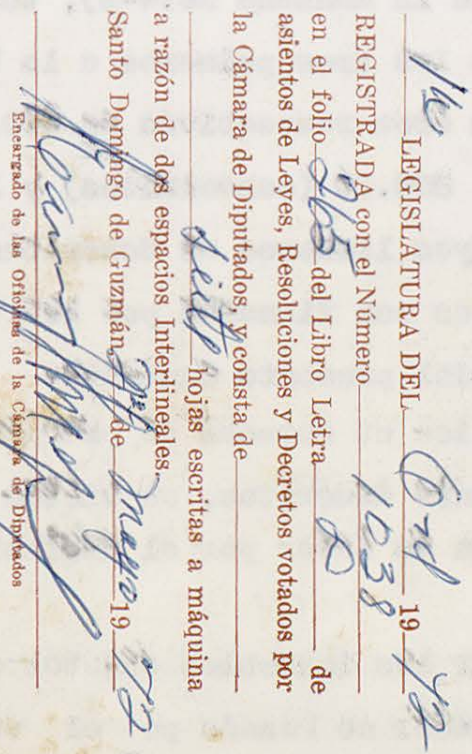 1ª LEGISLATURA DEL Ord 19 72
REGISTRADA con el Número 1038
en el folio 265 del Libro Letra D de
asientos de Leyes, Resoluciones y Decretos votados por
la Cámara de Diputados y consta de
siete hojas escritas a máquina
a razón de dos espacios Interlineales.
Santo Domingo de Guzmán, de mayo 19 72
Encargado de las Oficinas de la Cámara de Diputados